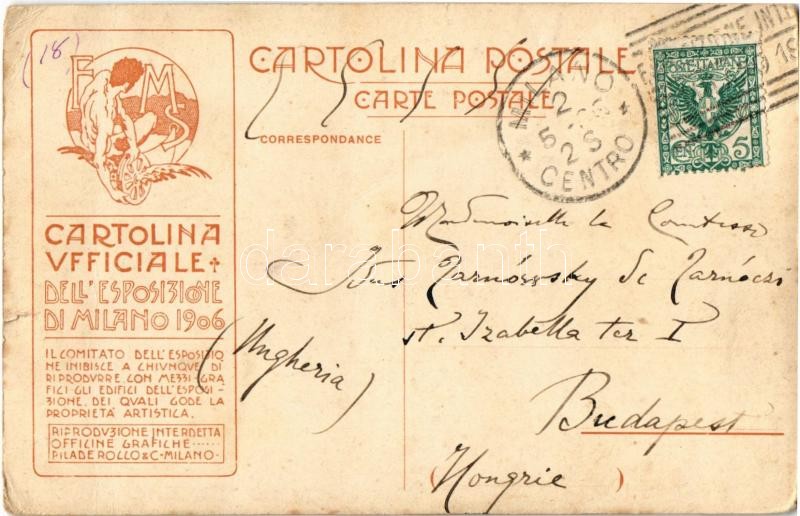 (18)
F
M
S
CARTOLINA
VFFICIALE
DELL'ESPOSIZIONE
DI MILANO 1906
IL COMITATO DELL'ESPOSIZIO
NE INIBISCE A CHIUNQUE DI
RIPRODURRE CON MEZZI GRA
FICI GLI EDIFICI DELL'ESPOSI-
ZIONE DEI QUALI GODE LA
PROPRIETÀ ARTISTICA.
RIPRODVZIONE INTERDETTA
OFFICINE GRAFICHE
PILADE ROCCO & C·MILANO·
CARTOLINA POSTALE
CARTE POSTALE
CORRESPONDANCE
MILANO
2
5
2S
* CENTRO *
POSTE ITALIANE
CENT. 5
Mademoiselle la Comtesse
Tarnóczy de Tarnóczi
st. Izabella ter I
(Ungheria)
Budapest
(Hongrie)
darabanth.com